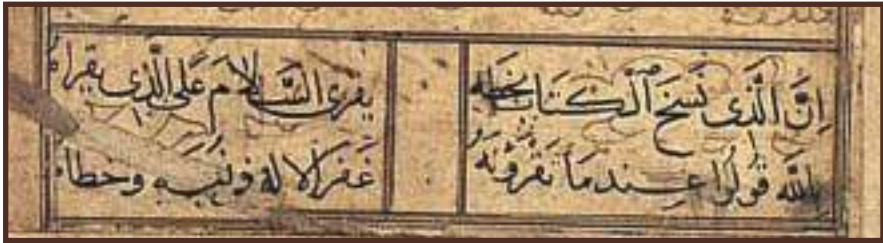 اِنَّ الَّذى نَسَخَ ٱلْكتَاب بخطه يقرى السَّلامَ عَلى الَّذى يقراه
بالله قُولُوا عِندمَا تقروُنَهُ غَفَرَ الالهُ ذونَبَه وخطاه